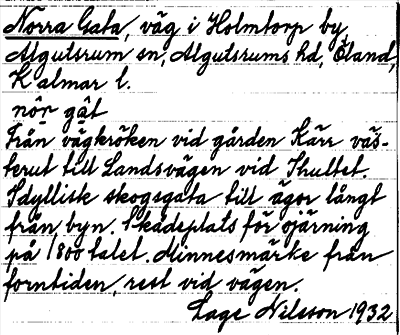 Norra Gata, väg i Holmtorp by,
Algutsrum sn, Algutsrums hd, Öland,
Kalmar l.
nör gåt
Från vägkröken vid gården Kärr väs-
terut till Landsvägen vid Skultet.
Idyllisk skogsgata till ägor långt
från byn. Skådeplats för ojärning
på 1800 talet. Minnesmärke från
forntiden, rest vid vägen.
Lage Nilsson 1932